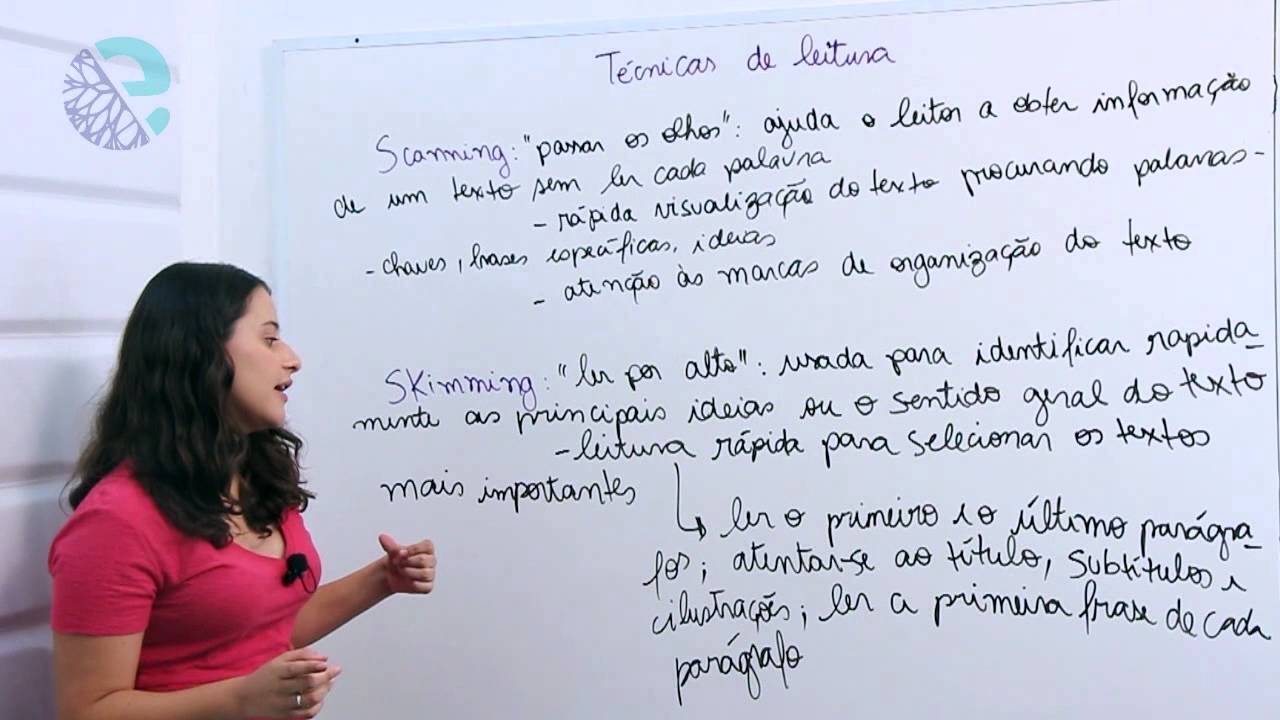 Técnicas de leitura
Scanning: "passar os olhos": ajuda o leitor a obter informação
de um texto sem ler cada palavra
- rápida visualização do texto procurando palavras-
-chaves, frases específicas, ideias
- atenção às marcas de organização do texto
Skimming: "ler por alto": usada para identificar rapida-
mente as principais ideias ou o sentido geral do texto
- leitura rápida para selecionar os textos
mais importantes
ler o primeiro e o último parágra-
fos; atentar-se ao título, subtítulos e
ilustrações; ler a primeira frase de cada
parágrafo